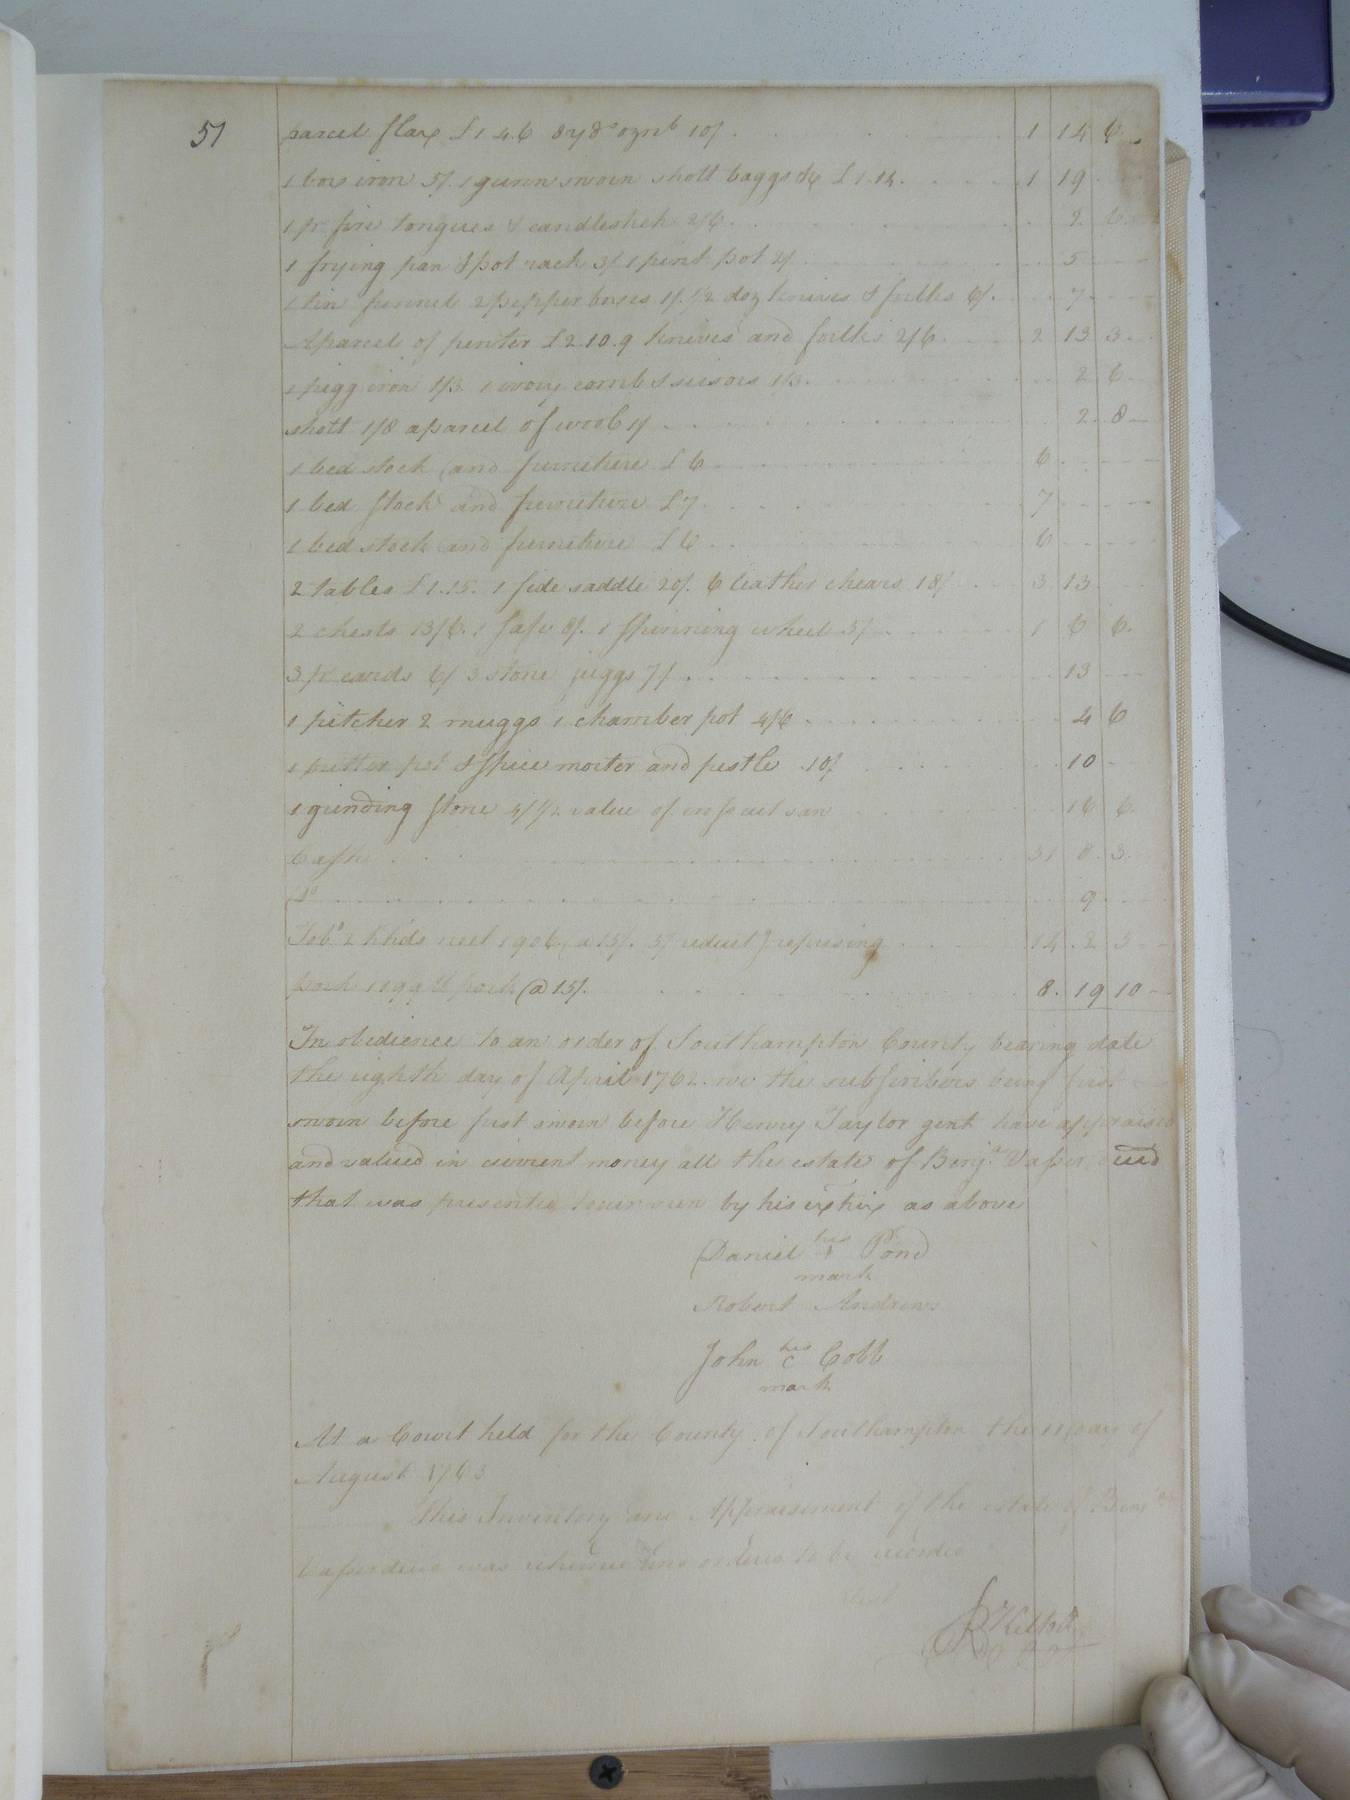 51
parcel flax £1.4.6 8 yds oznb 10/ 1 14 6
1 box iron 5/. 1 gunn sworn shott baggs &c £1.14. 1 19
1 pr fire tongues & candlestick 2/6 2 6
1 frying pan & pot rack 3/ 1 pint pot 2/ 5
1 tin funnel 2 pepper boxes 1/. 1/2 doz knives & forlks 6/. 7
A parcel of pewter £2.10.9 knives and forlks 2/6 2 13 3
1 pigg iron 1/3 1 ivory comb & sisors 1/3. 2 6
shott 1/8 a parcel of wool 1/ 2 8
1 bed stock and furniture £6 6
1 bed stock and furniture £7 7
1 bed stock and furniture £6 6
2 tables £1.15. 1 side saddle 20/. 6 leather chears 18/ 3 13
2 chests 13/6. 1 safe 8/. 1 spinning wheel 5/ 1 6 6
3 pr cards 6/ 3 stone juggs 7/ 13
1 pitcher 2 muggs 1 chamber pot 4/6 4 6
1 butter pot & spice morter and pestle 10/ 10
1 grinding stone 4/ 1/2 value of 16 6
Cash 31 8 3
Do 9
Tobo 2 hhds neet 1906 @ 15/. 5/ deduct prizing 14 2 5
pork 1199 lb pork @ 15/. 8 19 10
In obedience to an order of Southampton County bearing date
the eighth day of April 1762. we the subscribers being first
sworn before first sworn before Henry Taylor gent have appraised
and valued in current money all the estate of Benja. Vasser decd
that was presented to our view by his extrix as above
Daniel his + Pond
mark
Robert Andrews
John his C Cobb
mark
At a Court held for the County of Southampton the 11 day of
August 1763
This Inventory and Appraisement of the estate of Benja
Vasser decd was returned and ordered to be recorded
Test
R Kello